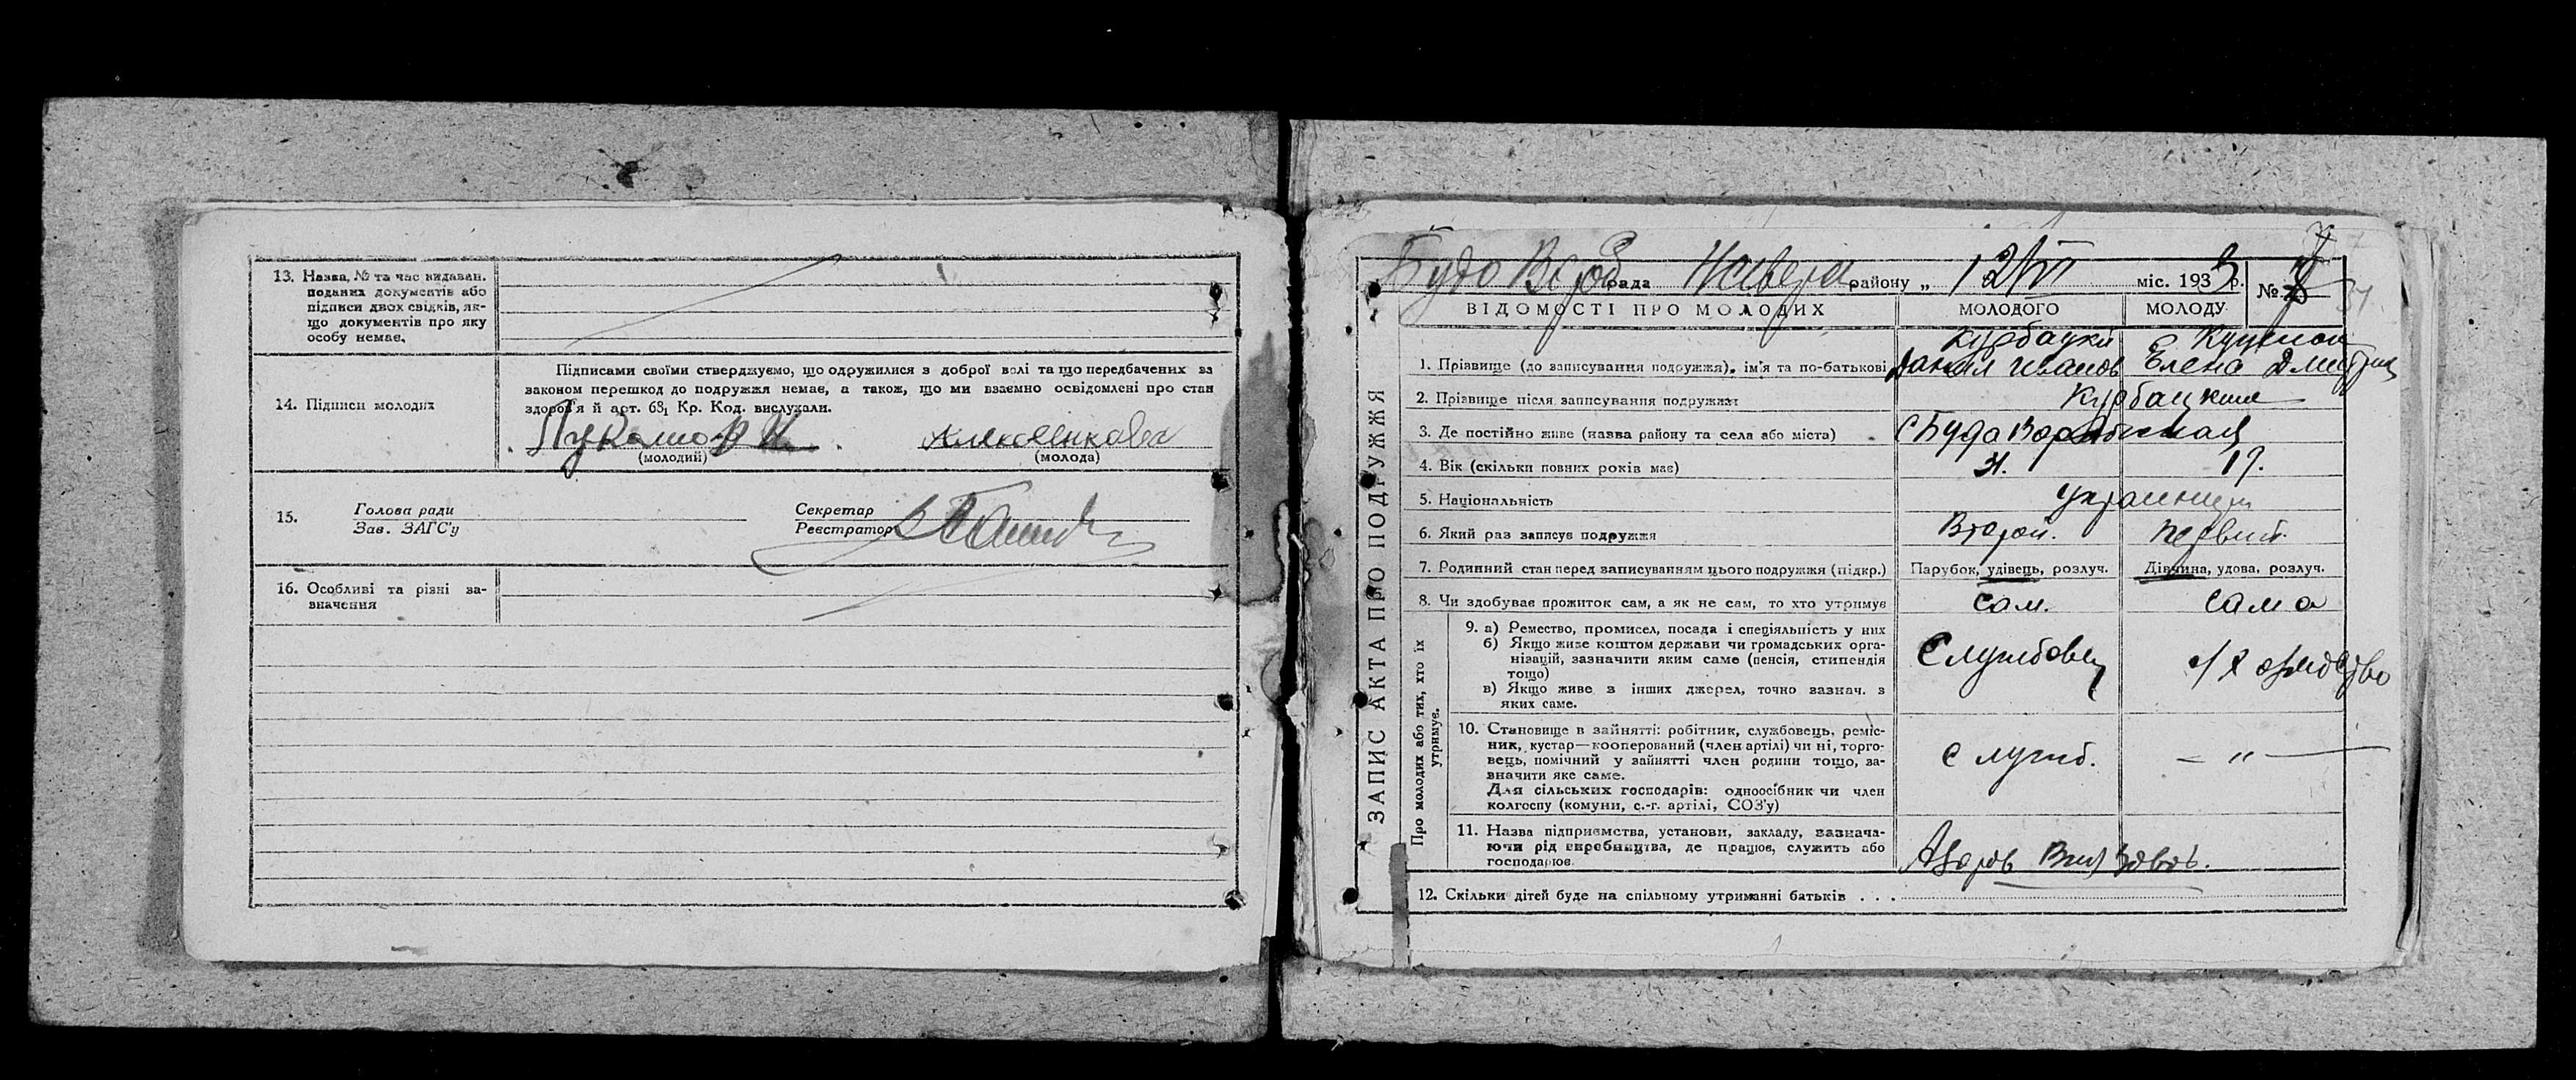 13. Назва, № та час видаван.
поданих документів або
підписи двох свідків, як-
що документів про яку
особу немає.
14. Підписи молодих
Підписами своїми стверджуємо, що одружилися з доброї волі та що передбачених за
законом перешкод до подружжя немає, а також, що ми взаємно освідомлені про стан
здоров'я й арт. 68₁ Кр. Код. вислухали.
(молодий)
(молода)
15.
Голова ради
Зав. ЗАГС'у
Секретар
Реєстратор
16. Особливі та різні за-
значення
ЗАПИС АКТА ПРО ПОДРУЖЖЯ
Будо Вороб рада району „ 12/VI міс. 1933 р. №
ВІДОМОСТІ ПРО МОЛОДИХ МОЛОДОГО МОЛОДУ
1. Прізвище (до записування подружжя), ім'я та по-батькові Данил Иванов Елена Дмитрив
2. Прізвище після записування подружжя Курбацкие
3. Де постійно живе (назва району та села або міста) с Буда Воробиевская
4. Вік (скільки повних років має) 19.
5. Національність украинцы
6. Який раз записує подружжя Второй. первый.
7. Родинний стан перед записуванням цього подружжя (підкр.) Парубок, удівець, розлуч. Дівчина, удова, розлуч.
8. Чи здобуває прожиток сам, а як не сам, то хто утримує сам. сама
Про молодих або тих, хто їх
утримує.
9. а) Ремество, промисел, посада і спеціяльність у них
б) Якщо живе коштом держави чи громадських орга-
нізацій, зазначити яким саме (пенсія, стипендія
тощо)
в) Якщо живе з інших джерел, точно зазнач. з
яких саме.
Службовец
10. Становище в зайнятті: робітник, службовець, реміс-
ник, кустар—кооперований (член артілі) чи ні, торго-
вець, помічний у зайнятті член родини тощо, за-
значити яке саме.
Для сільських господарів: одноосібник чи член
колгоспу (комуни, с.-г. артілі, СОЗ'у)
служб. — „ —
11. Назва підприємства, установи, закладу, зазнача-
ючи рід виробництва, де працює, служить або
господарює
12. Скільки дітей буде на спільному утриманні батьків . . .